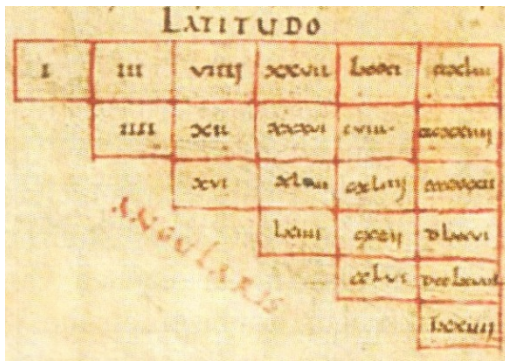 LATITUDO
I III viiij xxvii lxxxi ccxliii
IIII xii xxxvi cviii cccxxiiij
xvi xlviii cxliiij ccccxxxii
lxiiii cxcij dlxxvi
cclvi dcclxviii
ANGULARIS